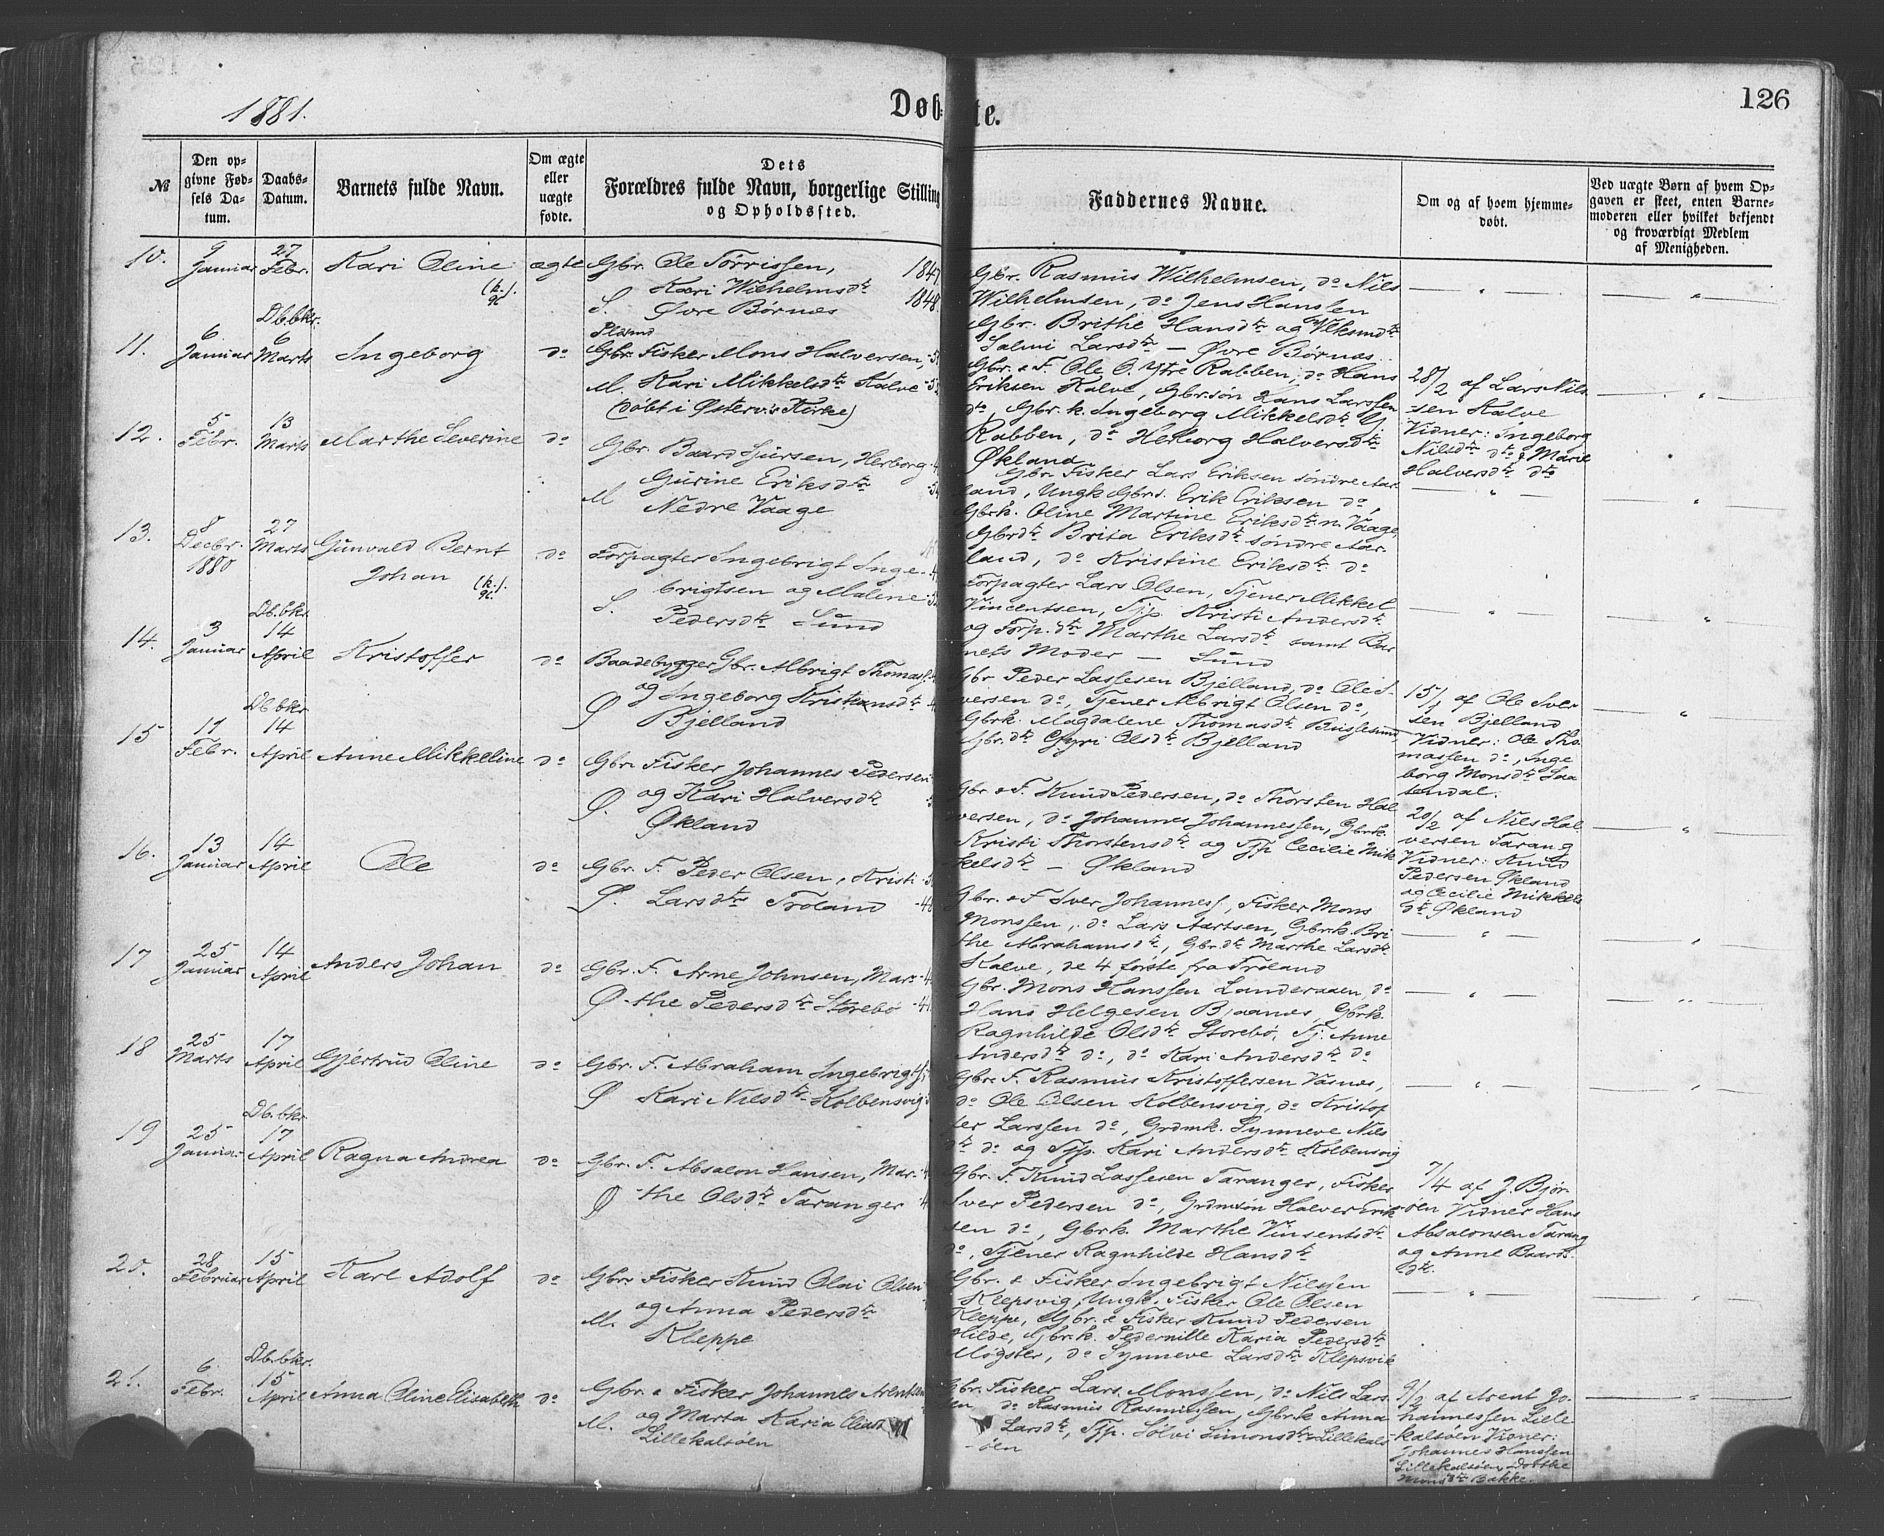 1881.
Døb-te.
126
№
Den op-
givne Fød-
sels Da-
tum.
Daabs-
Datum.
Barnets fulde Navn.
Om ægte
eller
uægte
fødte.
Dets
Forældres fulde Navn, borgerlige Stilling
og Opholdssted.
Faddernes Navne.
Om og af hvem hjemme-
døbt.
Ved uægte Børn af hvem Op-
gaven er skeet, enten Barne-
moderen eller hvilket bekjendt
og troværdigt Medlem
af Menigheden.
10.
9
Januar
27
Febr.
Kari Oline
(k.)
ægte
Gbr. Ole Tørrissen, 1847
Kari Wilhelmsdtr 1848
S. Øvre Børnes
Gbr. Rasmus Wilhelmsen, do Nils
Wilhelmsen, do Jens Hansen
Gbr. Brithe Hansdtr og
Salmi Larsdtr — Øvre Børnæs.
11.
6
Januar
Db.bkr.
6
Marts
Ingeborg
do
Gbr. Fisker Mons Halversen,
M. Kari Mikkelsdtr Kalve
(døbt i Østerv's Kirke)
Gbr. & F. Ole O. Ytre Rabben, do Hans
Eriksen Kalve, Gbr.søn Hans Larssen
do, Gbr.k. Ingeborg Mikkelsdtr Y.
Rabben, do Herborg Halversdtr
Økland
28/2 af Lars Nils-
sen Kalve
Vidner: Ingeborg
Nilsdtr do & Marie
Halversdtr do
12.
5
Febr.
13
Marts
Marthe Severine
do
Gbr. Baard Sjursen, Herborg
Gurine Eriksdtr
M Nedre Vaage
Gbr. Fisker Lars Eriksen søndre Aar-
land, Ungk. Gbrs. Erik Eriksen do,
Gbrk. Oline Martine Eriksdtr n. Vaage,
Gbrdtr Brita Eriksdtr søndre Aar-
land, do Kristine Eriksdtr do
13.
8
Decbr.
1880
27
Marts
Gunvald Bernt
Johan (k.)
do
Forpagter Ingebrigt Inge-
brigtsen og Malene
S. Pedersdtr Sund
Forpagter Lars Olsen, Tjener Mikkel
Vincentsen, Tjp. Kristi Andersdtr
og Forp.dtr Marthe Larsdtr samt Bar-
nets Moder — Sund
14.
3
Januar
Db.bkr.
14
April
Kristoffer
do
Baadebygger Gbr. Albrigt Thomass.
og Ingeborg Kristiansdtr
Ø Bjelland
Gbr Peder Lassesen Bjelland, do Ole I-
versen do, Tjener Albrigt Olsen do,
Gbrk. Magdalene Thomasdtr Buslesund,
Gbr.dtr Gyri Olsdtr Bjelland
15/1 af Ole Iver
sen Bjelland
Vidner: Ole Tho-
massen do, Inge
borg Monsdtr Saa
tendal.
15
11
Febr.
Db.bkr
14
April
Anne Mikkeline
do
Gbr. Fisker Johannes Pedersen
og Kari Halversdtr
Ø. Økland
Gbr & F. Knud Pedersen, do Thorsten Hal
versen, do Johannes Johannessen, Gbrk.
Kristi Thorstensdtr og Tjp Cecilie Mik
kelsdtr — Økland
20/2 af Nils Hal
versen Tarang
Vidner: Knud
Pedersen Økland
og Cecilie Mikkels
dtr Økland
16.
13
Januar
14
April
Ole
do
Gbr. F. Peder Olsen, Kristi
Ø. Larsdtr Troland
Gbr. & F Iver Johanness, Fisker Mons
Monssen, do Lars Aartsen, Gbrk. Bri
the Abrahamsdtr, Gbr.dtr Marthe Larsdtr
Kalve, de 4 første fra Troland
17
25
Januar
14
April
Anders Johan
do
Gbr. F. Arne Johnsen, Mar-
Ø -the Pedersdtr Storebø
Gbr. Mons Hanssen Landeraaen, do
Hans Helgesen Bjaanes, Gbrk.
Ragnhilde Olsdtr Storebø, Tj. Anne
Andersdtr do, do Kari Andersdtr do
18
25
Marts
17
April
Gjertrud Oline
do
Gbr. F. Abraham Ingebrigts
Ø Kari Nilsdtr Kolbensvig
Gbr. F. Rasmus Kristoffersen Vasnes,
do Ole Olsen Kolbensvig, do Kristof
fer Larssen do, Grdmk. Synneve Nils
dtr do og Tjp. Kari Andersdtr Kolbensvig
19
25
Januar
Db.bkr
17
April
Ragna Andrea
do
Gbr. F. Absalon Hansen, Mar-
Ø the Olsdtr Taranger
Gbr. F. Knud Lassesen Taranger, Fisker
Iver Pedersen do, Grdmsøn Halver Erik
sen do, Gbrk. Marthe Vinsentsdtr
do, Tjener Ragnhilde Hansdtr
7/4 af J. Bjør-
øen Vidner Hans
Absalonsen Tarang
og Anne Baards
dtr.
20.
28
Februar
15
April
Karl Adolf
do
Gbr. Fisker Knud Olai Olsen
og Anna Pedersdtr
M. Kleppe
Gbr. & Fisker Ingebrigt Nilssen
Klepsvig, Ungk. Fisker Ole Olsen
Kleppe, Gbr. & Fisker Knud Pedersen
Hilde, Gbrk. Pedernille Karia Pedersdtr
Møgster, do Synneve Larsdtr Klepsvik
21.
6
Febr.
Db.bkr.
15
April
Anna Oline Elisabeth
do
Gbr. & Fisker Johannes Arentsen
og Marta Karia
M. Lillekalsøen
Gbr. Fisker Lars Monssen, do Nils Lars-
sen do Rasmus Rasmussen, Gbrk Anna
Larsdtr, Tjp. Sølvi Simonsdtr Lillekals
-øen
9/2 af Arent Jo-
hannessen Lille
kalsøen Vidner:
Johannes Hanssen
Lillekalsøen, Dorthe
Monsdtr Bakke.